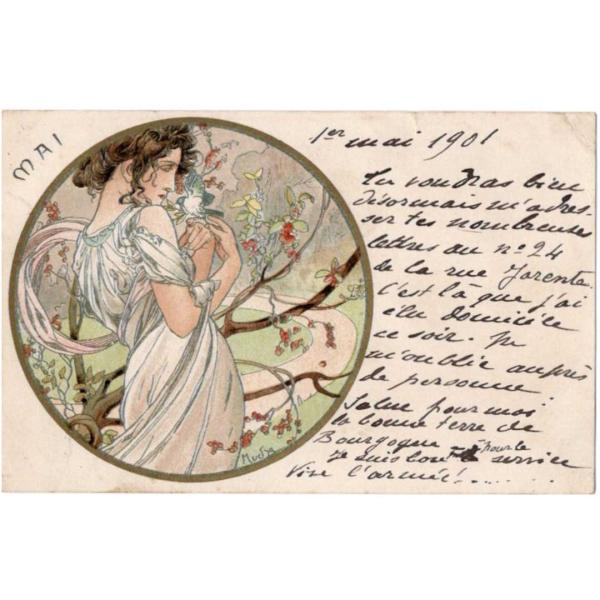 MAI
1er mai 1901
Tu voudras bien
désormais m'adres-
ser tes nombreuses
lettres au no 24
de la rue Jarente.
C'est là que j'ai
élu domicile
ce soir. Ne
m'oublie auprès
de personne.
Salue pour moi
la bonne terre de
Bourgogne
Je suis tout pour le service
Vive l'armée!......
Mucha